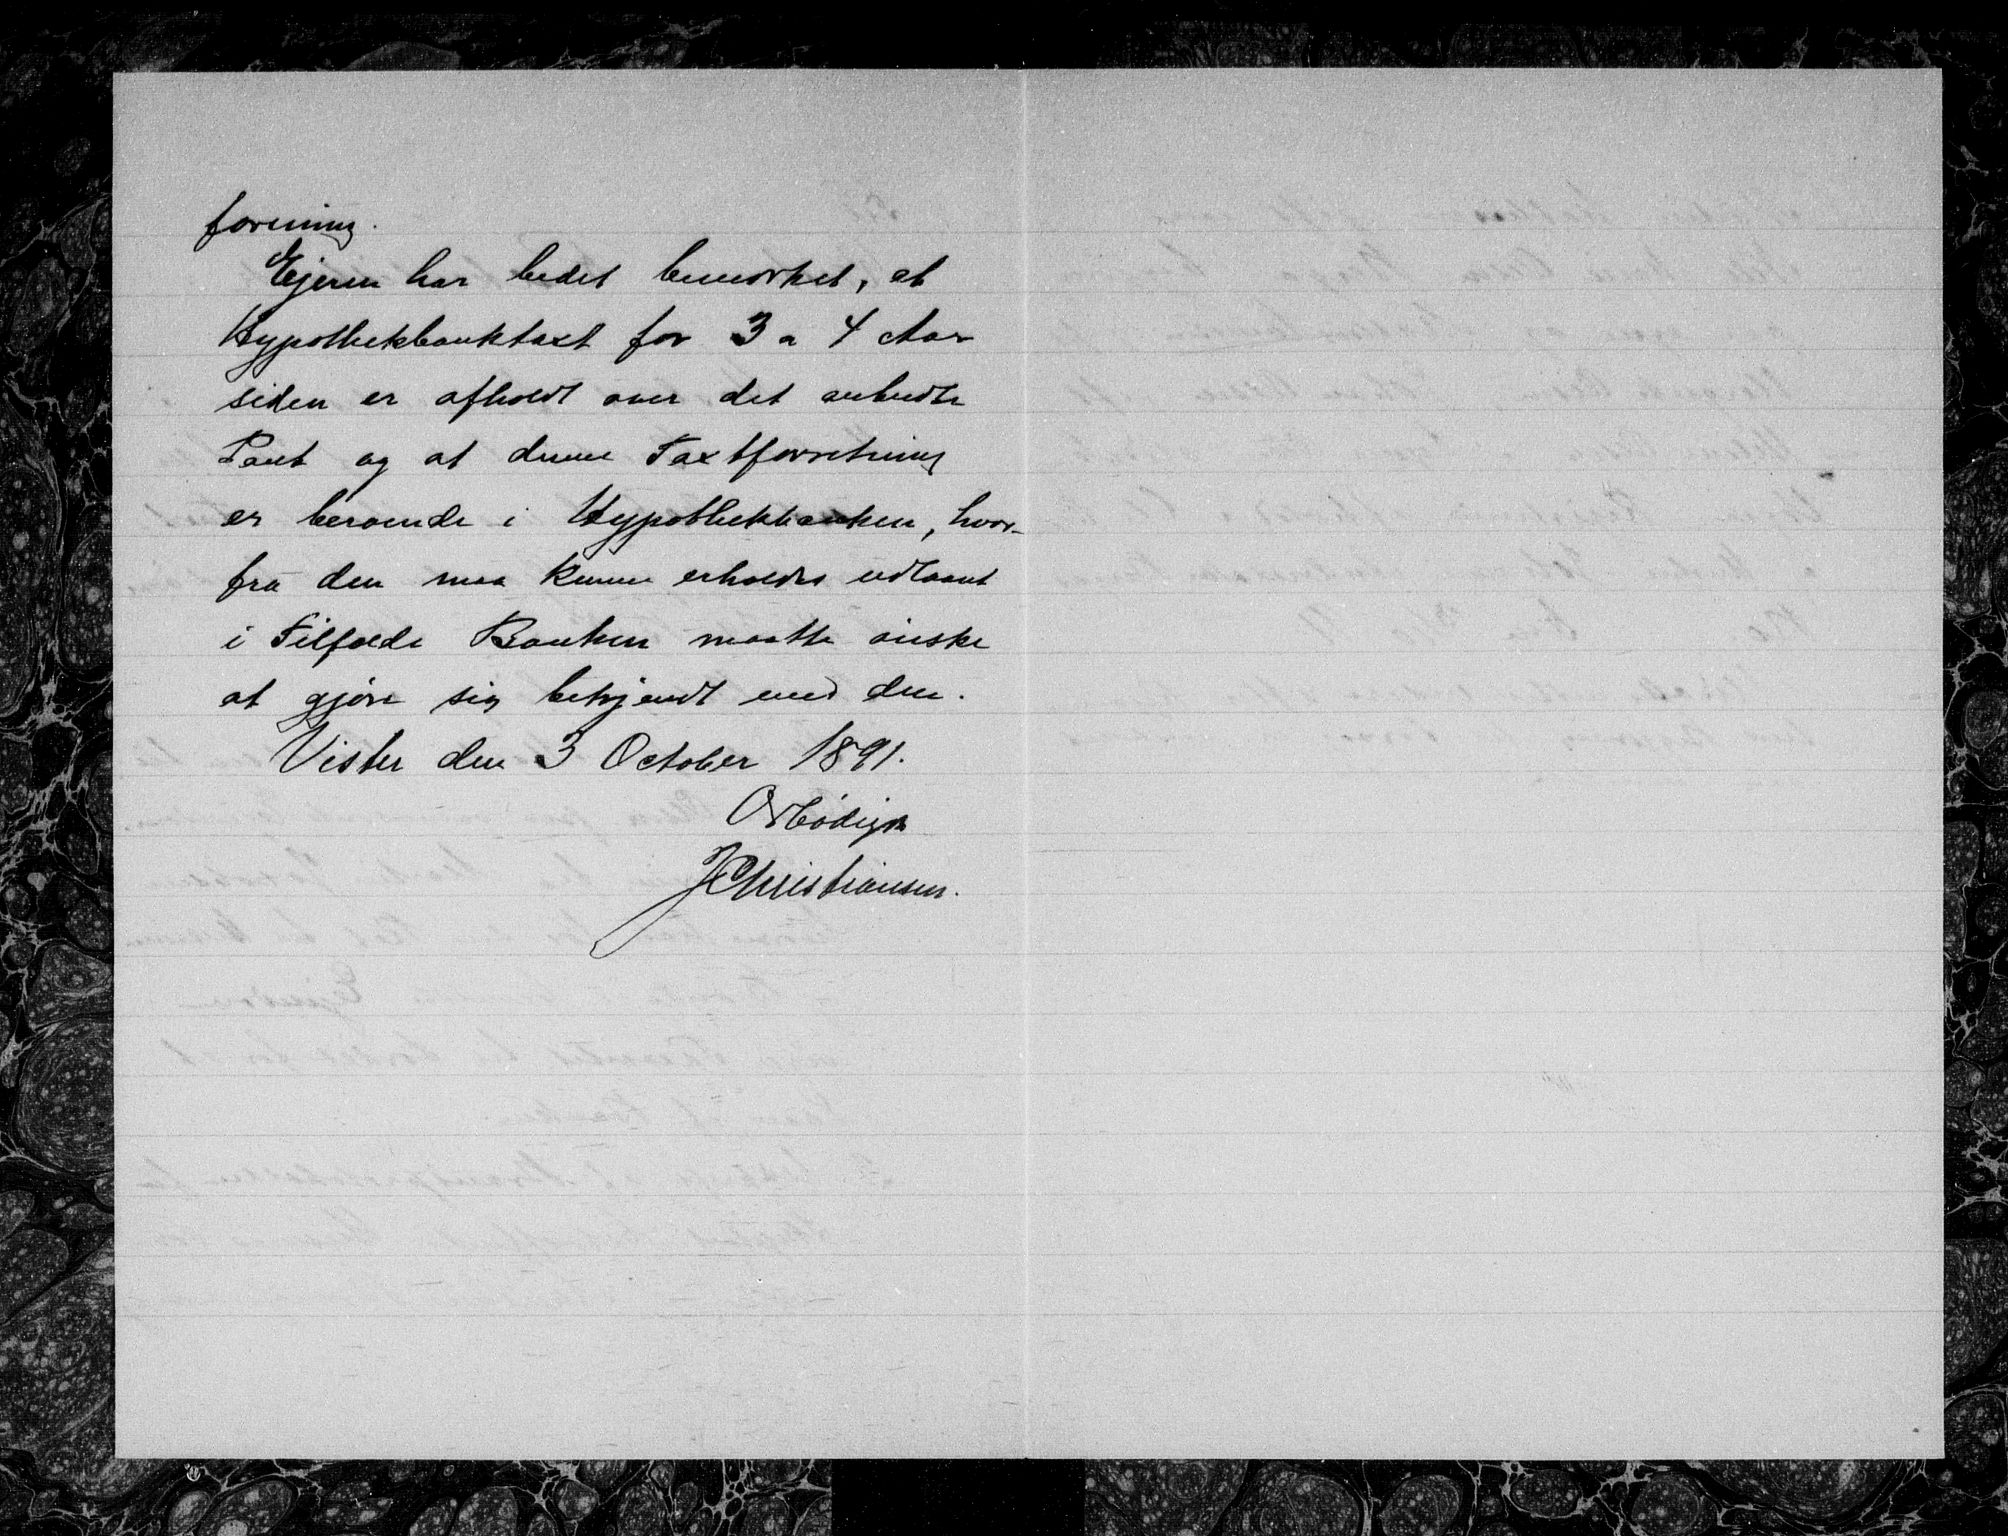 forening.
Ejeren har bedet bemærket, at
Hypothekbanktaxt for 3 a 4 Aar
siden er afholdt over det anbudte
Pant og at denne Taxtforretning
er beroende i Hypothekbanken, hvor-
fra den maa kunne erholdes udlaant
i Tilfælde Banken maatte ønske
at gjøre sig bekjendt med den.
Vister den 3 October 1891.
Ærbødigst
JChristiansen.